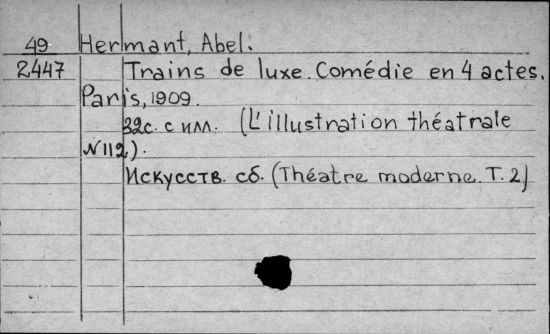 49 Hermant, Abel.
2447 Trains de luxe. Comédie en 4 actes.
Paris, 1909.
32с. с илл. (L'illustration théatrale
N112).
Искусств. сб. (Théatre moderne. T. 2)